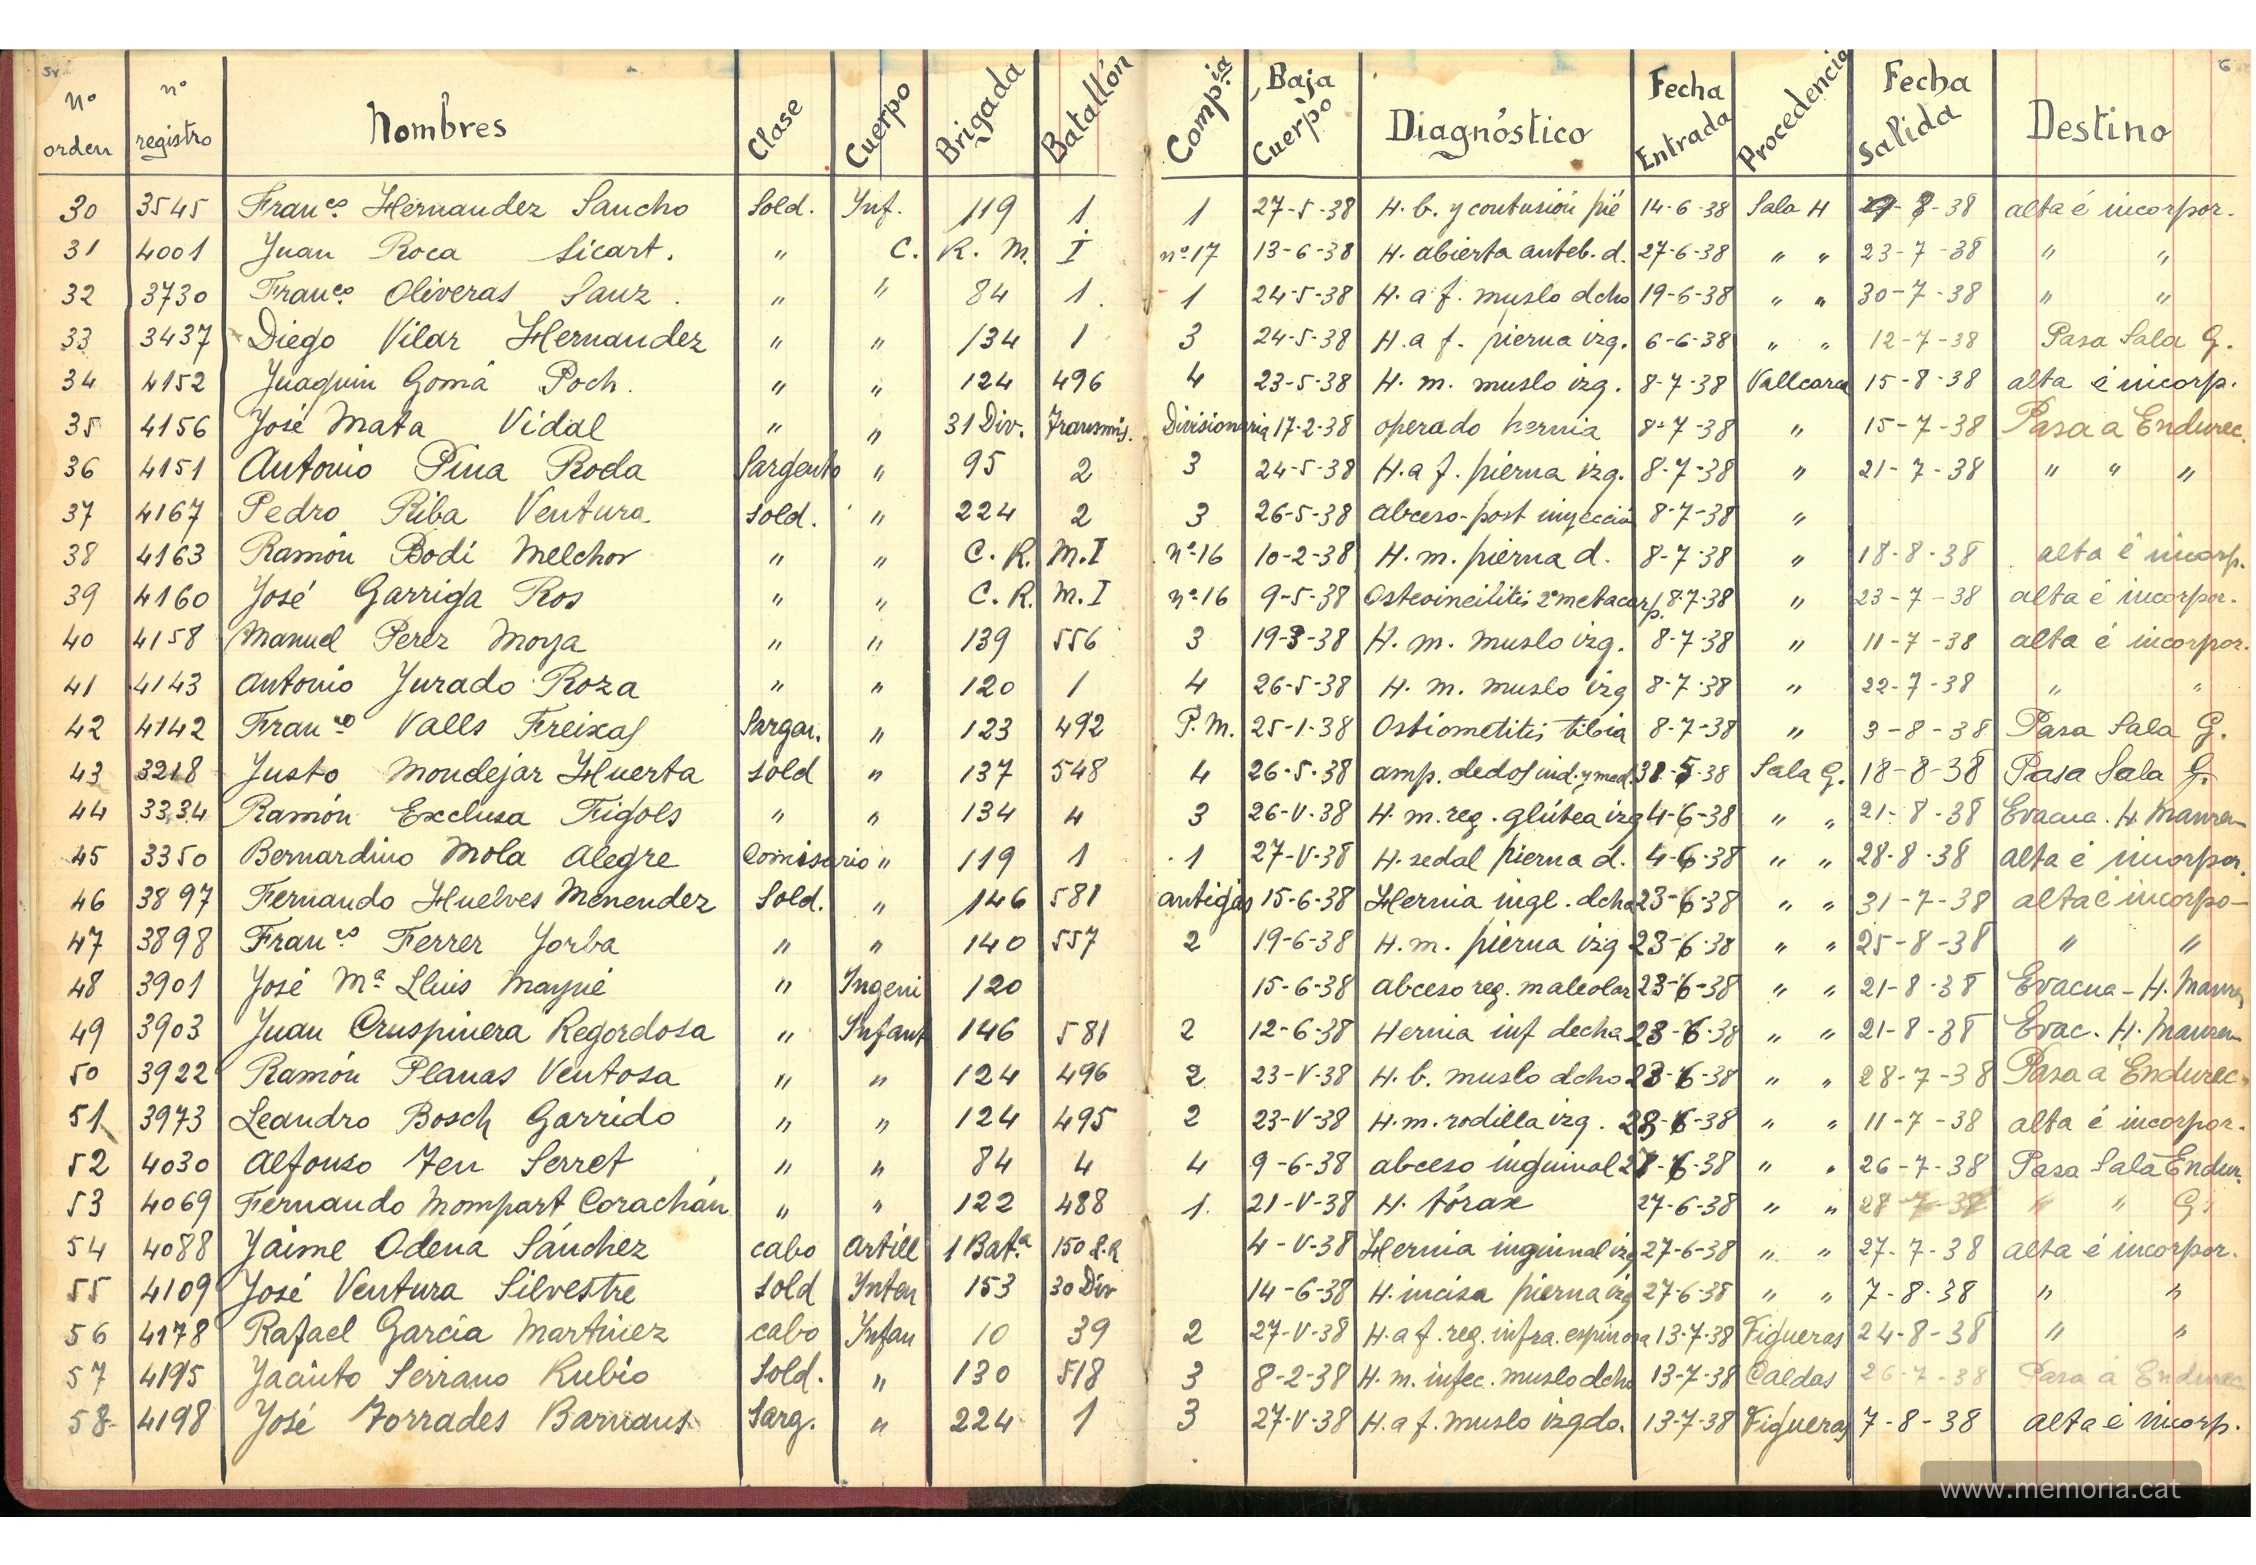 5v 6
Nº orden nº registro Nombres Clase Cuerpo Brigada Batallón Compia Baja Cuerpo Diagnóstico Fecha Entrada Procedencia Fecha Salida Destino
30 3545 Franco. Hernandez Sancho Sold. Ynf. 119 1. 1 27-5-38 H. b. y contusión pié 14-6-38 Sala H 8-38 alta é incorpor.
31 4001 Juan Roca Sicart. " C. R. M. I nº 17 13-6-38 H. abierta anteb. d. 27-6-38 " " 23-7-38 " "
32 3730 Franco. Oliveras Sanz. " " 84 1. 1 24-5-38 H. a f. muslo dcho 19-6-38 " " 30-7-38 " "
33 3437 Diego Vilar Hernandez " " 134 1 3 24-5-38 H. a f. pierna izq. 6-6-38 " " 12-7-38 Pasa Sala G.
34 4152 Juaquin Gomá Poch. " " 124 496 4 23-5-38 H. m. muslo izq. 8-7-38 Vallcarca 15-8-38 alta é incorp.
35 4156 José Mata Vidal " " 31 Div. Transmis. Divisionaria 17-2-38 operado hernia 8-7-38 " 15-7-38 Pasa a Endurec.
36 4151 Antonio Pina Roda Sargento " 95 2 3 24-5-38 H. a f. pierna izq. 8-7-38 " 21-7-38 " " "
37 4167 Pedro Riba Ventura Sold. " 224 2 3 26-5-38 abceso-post inyección 8-7-38 "
38 4163 Ramón Bodí Melchor " " C. R. M. I nº 16 10-2-38 H. m. pierna d. 8-7-38 " 18-8-38 alta é incorp.
39 4160 José Garriga Ros " " C. R. M. I nº 16 9-5-38 Osteoineilitis 2º metacarp. 8-7-38 " 23-7-38 alta é incorpor.
40 4158 Manuel Perez Moya " " 139 556 3 19-3-38 H. m. muslo izq. 8-7-38 " 11-7-38 alta é incorpor.
41 4143 Antonio Jurado Roza " " 120 1 4 26-5-38 H. m. muslo izq 8-7-38 " 22-7-38 " "
42 4142 Franco Valls Freixas Sargen. " 123 492 P. M. 25-1-38 Ostiometitis tibia 8-7-38 " 3-8-38 Pasa Sala G.
43 3218 Justo Mondejar Huerta Sold " 137 548 4 26-5-38 amp. dedos ind. y med. 31-5-38 Sala G. 18-8-38 Pasa Sala G.
44 3334 Ramón Exclusa Figols " " 134 4 3 26-V-38 H. m. reg. glútea izq 4-6-38 " " 21-8-38 Evacua. H. Manre
45 3350 Bernardino Mola Alegre Comisario " 119 1 1 27-V-38 H. sedal pierna d. 4-6-38 " " 28-8-38 alta é incorpor.
46 3897 Fernando Huelves Menendez Sold. " 146 581 antigás 15-6-38 Hernia ingl. dcha 23-6-38 " " 31-7-38 alta é incorpo-
47 3898 Franco Ferrer Jorba " " 140 557 2 19-6-38 H. m. pierna izq 23-6-38 " " 25-8-38 " "
48 3901 José Mª Lluis Mayné " Yngeni 120 15-6-38 abceso reg. maleolar 23-6-38 " " 21-8-38 Evacua - H. Manre
49 3903 Juan Cruspinera Regordosa " Ynfant 146 581 2 12-6-38 Hernia inf decha 23-6-38 " " 21-8-38 Evac. H. Manre
50 3922 Ramón Planas Ventosa " " 124 496 2 23-V-38 H. b. muslo dcho 23-6-38 " " 28-7-38 Pasa a Endurec.
51 3973 Leandro Bosch Garrido " " 124 495 2 23-V-38 H. m. rodilla izq. 28-6-38 " " 11-7-38 alta é incorpor.
52 4030 Alfonso Ten Serret " " 84 4 4 9-6-38 abceso inguinal 27-6-38 " " 26-7-38 Pasa Sala Endur.
53 4069 Fernando Mompart Corachán " " 122 488 1. 21-V-38 H. tórax 27-6-38 " " 28-7-38 " " G.
54 4088 Jaime Odena Sánchez cabo Artill 1 Bat.ª 150 S.R 4-V-38 Hernia inguinal izq 27-6-38 " " 27-7-38 alta é incorpor.
55 4109 José Ventura Silvestre Sold Ynten 153 30 Div 14-6-38 H. incisa pierna izq 27-6-38 " " 7-8-38 " "
56 4178 Rafael García Martinez cabo Ynfan 10 39 2 27-V-38 H. a f. reg. infra. espinosa 13-7-38 Figueras 24-8-38 " "
57 4195 Jacinto Serrano Rubio Sold. " 130 518 3 8-2-38 H. m. infec. muslo dcho 13-7-38 Caldas 26-7-38 Pasa a Endurec
58 4198 José Torrades Barnaus Sarg. " 224 1 3 27-V-38 H. a f. muslo izqdo. 13-7-38 Figueras 7-8-38 alta é incorp.
www.memoria.cat